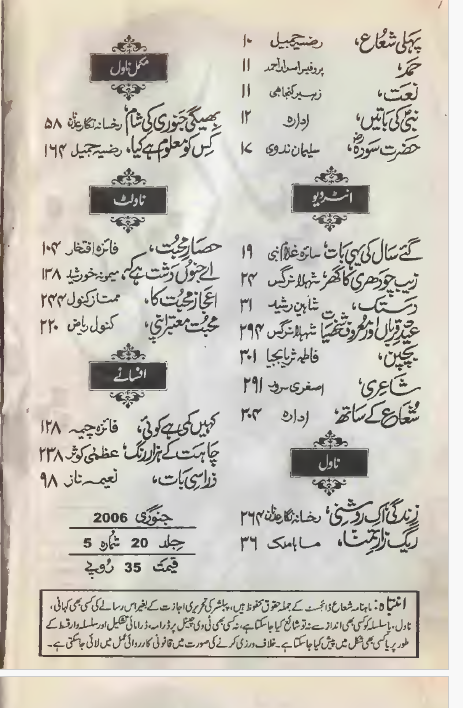 پہلی شعاع، رضیہ جمیل ۱۰
حمد، پروفیسر اسرار احمد ۱۱
نعت، زہیر کنجاہی ۱۱
نبیؐ کی باتیں، ادارہ ۱۲
حضرت سودہؓ، سلیمان ندوی ۱۷
انٹرویو
گئے سال کی یہی بات، سائرہ غلام نبی ۱۹
زیب چودھری کا گھر، شہلا نرگس ۲۴
دستک، شاہین رشید ۳۱
عید قرباں اور معروف شخصیات، شہلا نرگس ۲۹۴
بچپن، فاطمہ ثریا بجیا ۳۰۱
شاعری، اصغری سرور ۲۹۱
شعاع کے ساتھ، ادارہ ۳۰۴
ناول
زندگی اک روشنی، رخسانہ نگار عدنان ۲۶۴
ریگ زارِ تمنا، ماہا ملک ۳۶
مکمل ناول
بھیگی جنوری کی شام، رخسانہ نگار عدنان ۵۸
کس کو معلوم ہے کیا، رضیہ جمیل ۱۶۴
ناولٹ
حصارِ محبت، فائزہ افتخار ۱۰۴
اے جنوں دشت ہے کہ، میمونہ خورشید ۱۳۸
اعجاز محبت کا، ممتاز کنول ۲۴۴
محبت معتبر اپنی، کنول ریاض ۲۲۰
افسانے
کہیں کمی ہے کوئی، فائزہ چیمہ ۱۲۸
چاہت کے ہزار رنگ، عظمیٰ کوثر ۲۳۸
ذرا سی بات، نعیمہ ناز ۹۸
جنوری 2006
جلد 20 شمارہ 5
قیمت 35 روپے
انتباہ: ماہنامہ شعاع ڈائجسٹ کے جملہ حقوق محفوظ ہیں، پبلشر کی تحریری اجازت کے بغیر اس رسالے کی کسی بھی کہانی،
ناول، یا سلسلہ کو کسی بھی انداز سے نہ تو شائع کیا جا سکتا ہے، نہ کسی بھی ٹی وی چینل پر ڈرامہ، ڈرامائی تشکیل اور سلسلہ وار قسط کے
طور پر یا کسی بھی شکل میں پیش کیا جا سکتا ہے۔ خلاف ورزی کرنے کی صورت میں قانونی کارروائی عمل میں لائی جا سکتی ہے۔